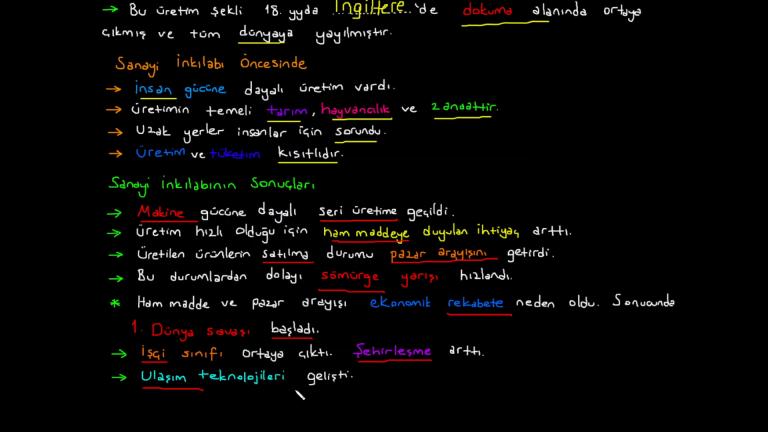 → Bu üretim şekli 18. yyda İngiltere 'de dokuma alanında ortaya
çıkmış ve tüm dünyaya yayılmıştır.
Sanayi İnkılabı Öncesinde
→ İnsan gücüne dayalı üretim vardı.
→ Üretimin temeli tarım, hayvancılık ve zanaattir.
→ Uzak yerler insanlar için sorundu.
→ Üretim ve tüketim kısıtlıdır.
Sanayi inkılabının Sonuçları
→ Makine gücüne dayalı seri üretime geçildi.
→ Üretim hızlı olduğu için ham maddeye duyulan ihtiyaç arttı.
→ Üretilen ürünlerin satılma durumu pazar arayışını getirdi.
→ Bu durumlardan dolayı sömürge yarışı hızlandı.
* Ham madde ve pazar arayışı ekonomik rekabete neden oldu. Sonucunda
1. Dünya savaşı başladı.
→ İşçi sınıfı ortaya çıktı. Şehirleşme arttı.
→ Ulaşım teknolojileri gelişti.